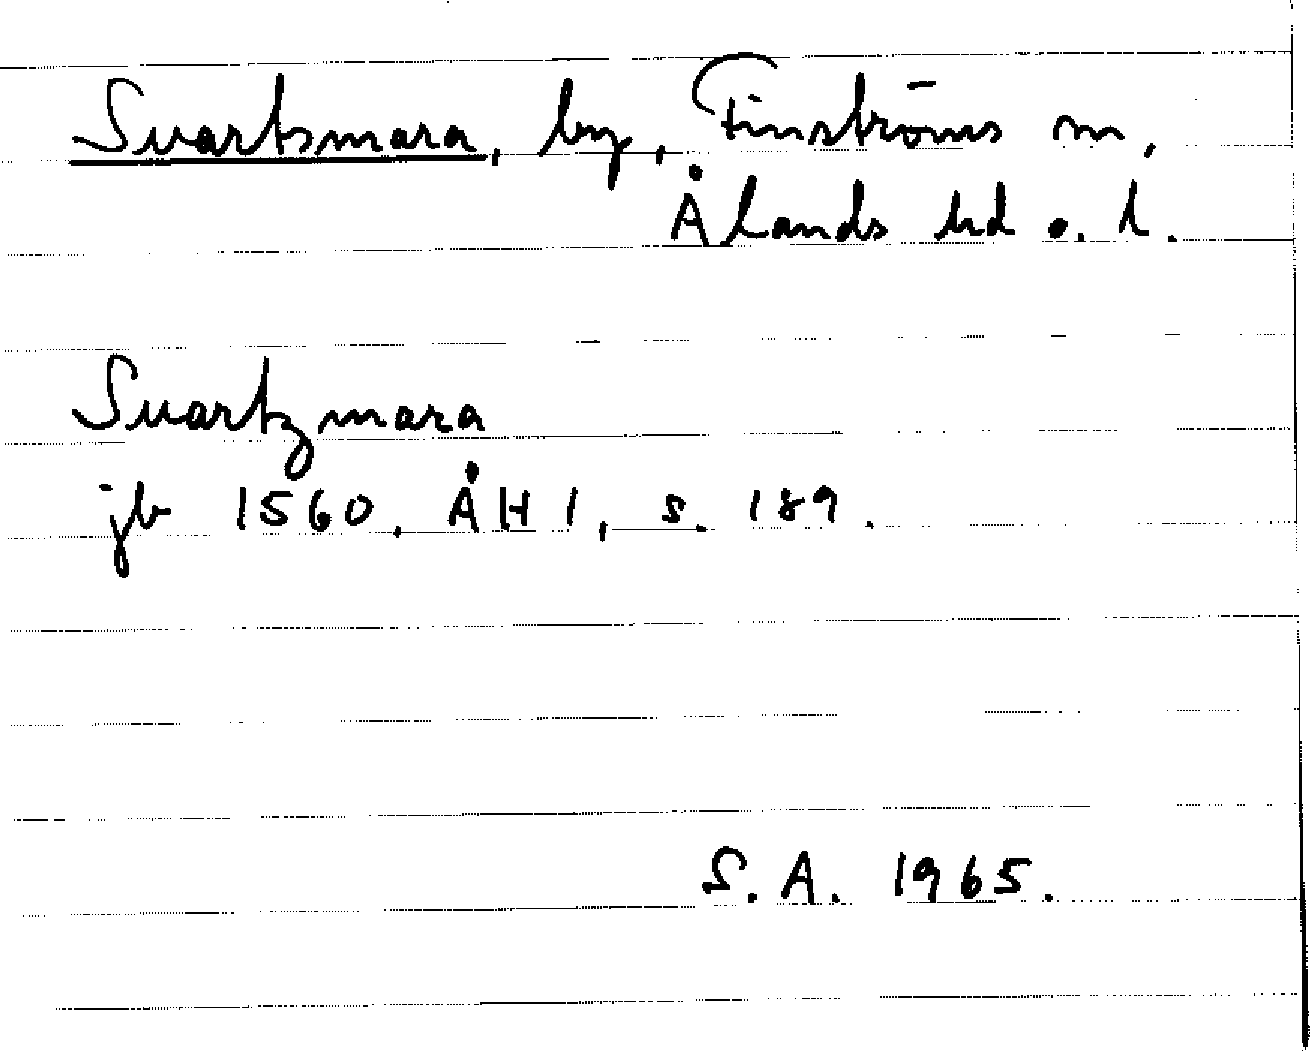 Svartsmara, by, Finströms sn,
Ålands hd o. l.
Suartzmara
jb 1560, ÅH 1, s. 189.
S. A. 1965.